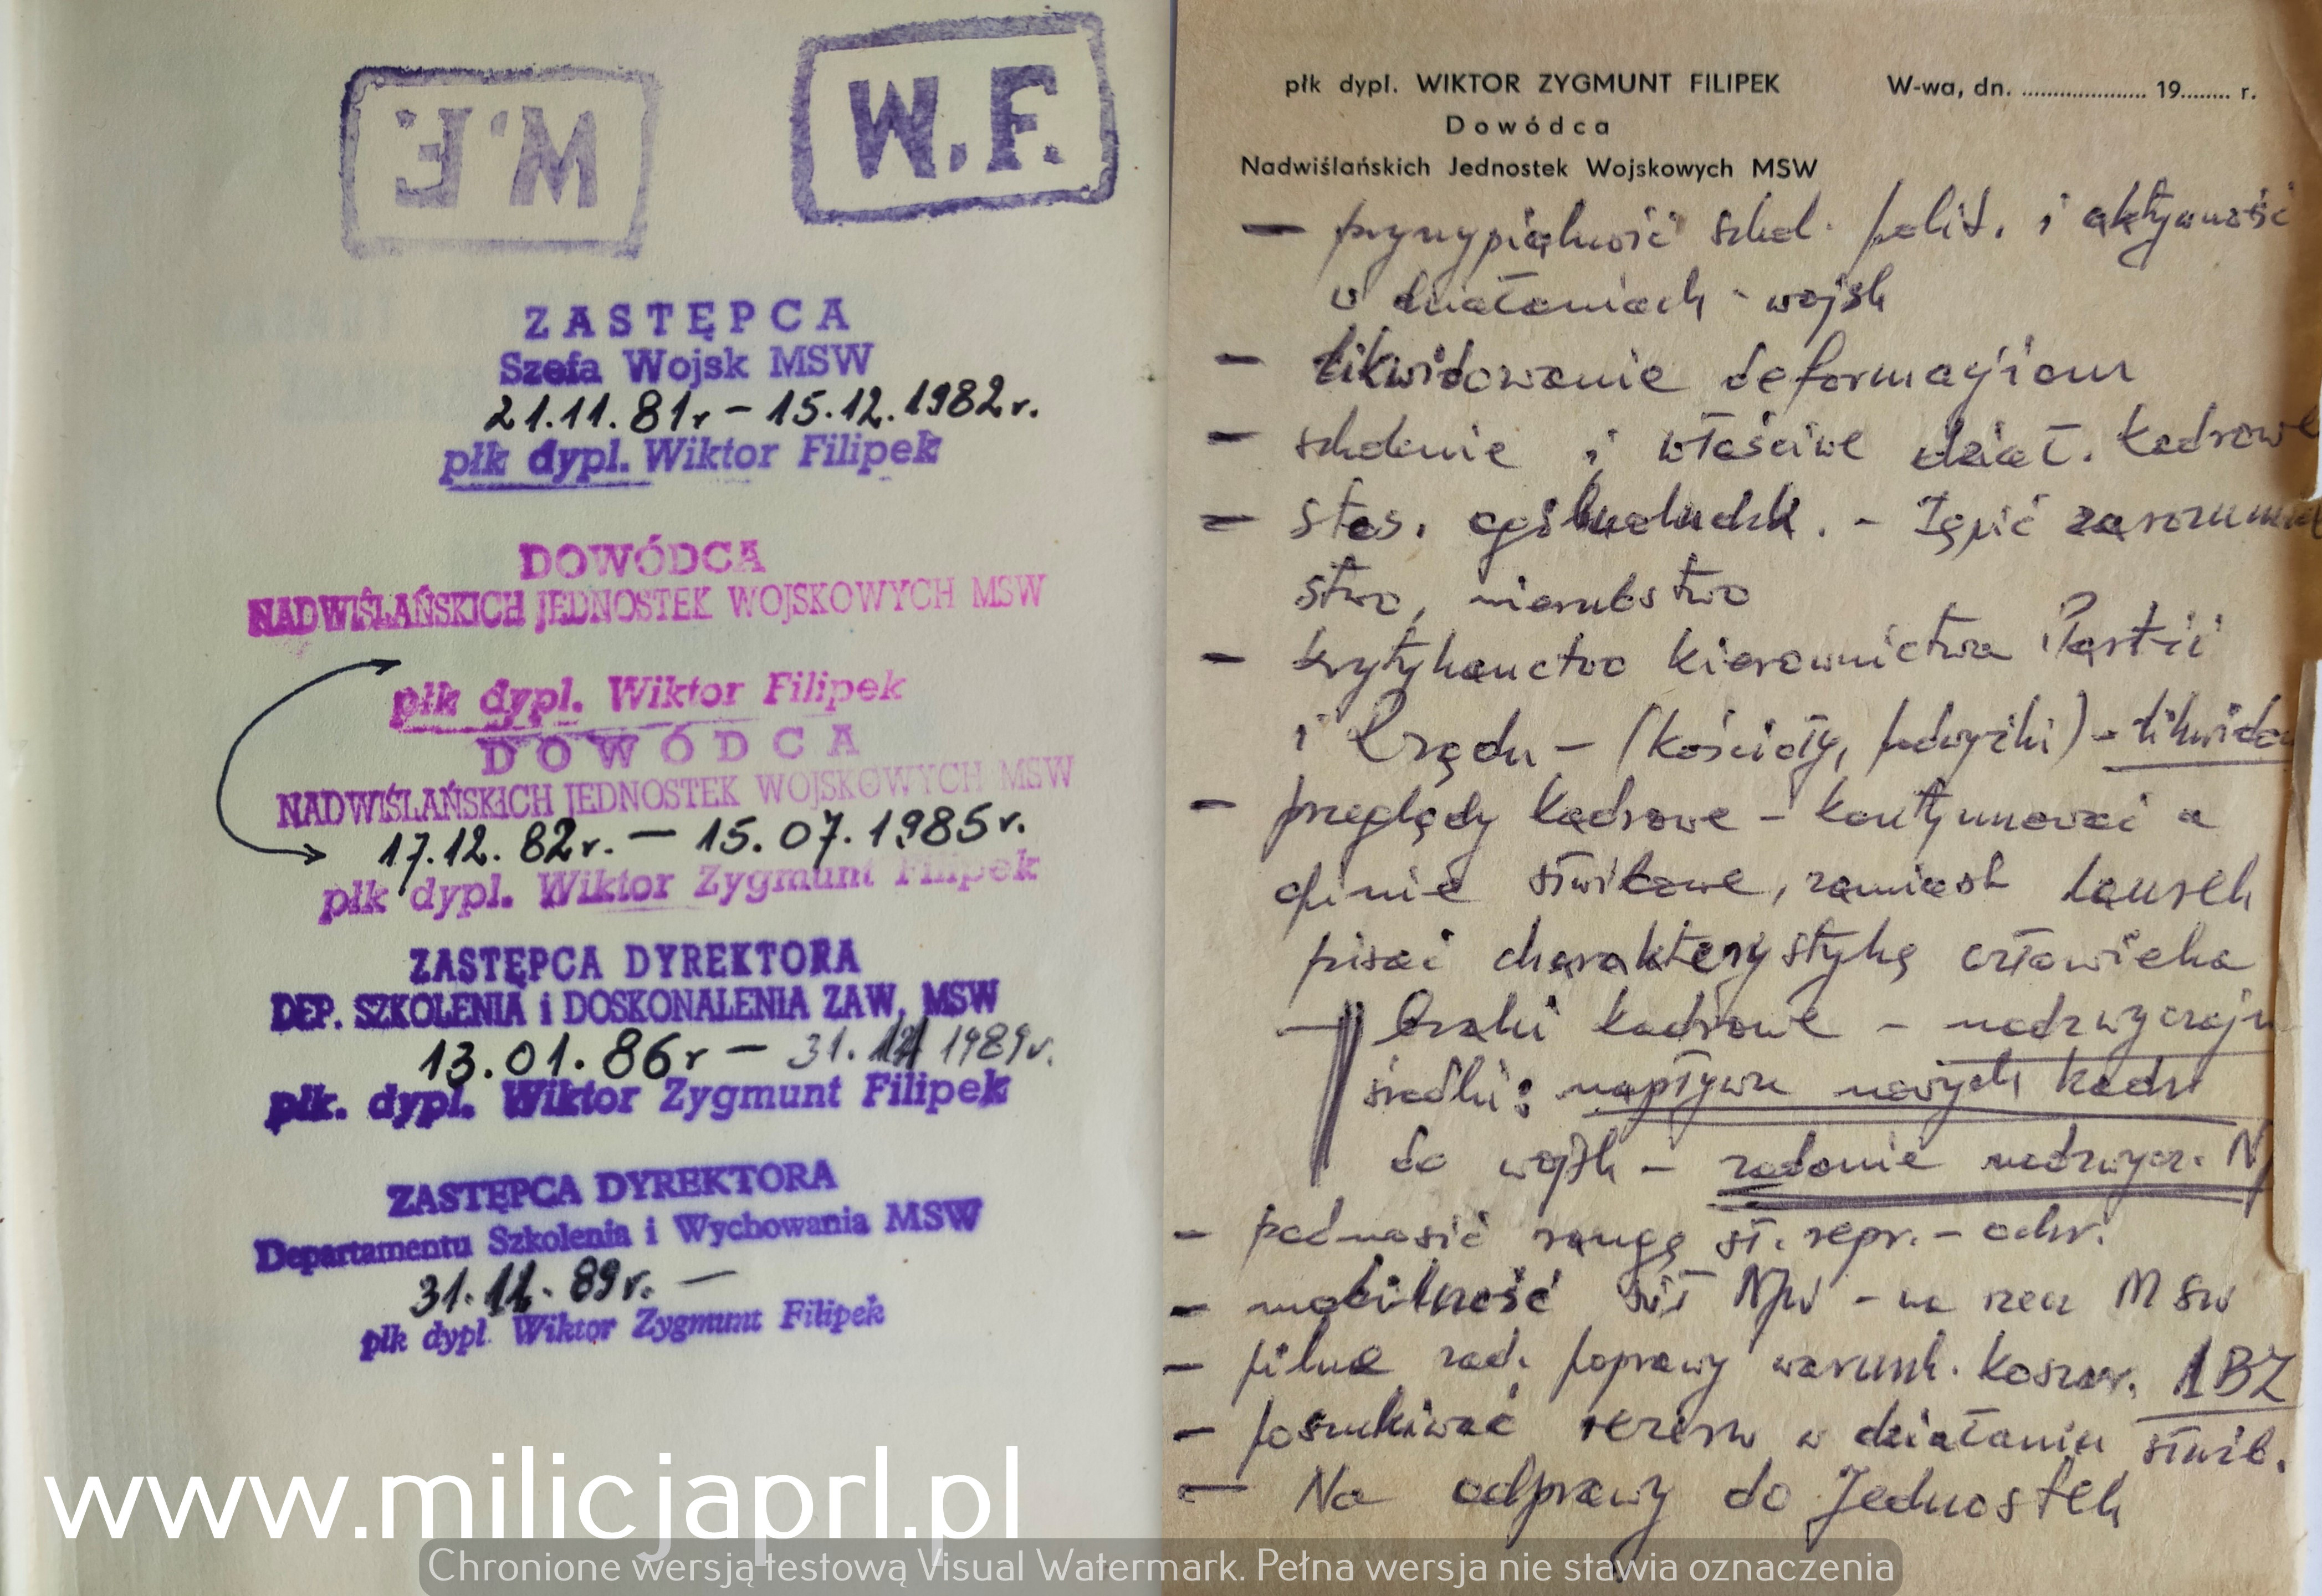 W.F.
W.F.
ZASTĘPCA
Szefa Wojsk MSW
21.11.81r – 15.12.1982r.
płk dypl. Wiktor Filipek
DOWÓDCA
NADWIŚLAŃSKICH JEDNOSTEK WOJSKOWYCH MSW
płk dypl. Wiktor Filipek
DOWÓDCA
NADWIŚLAŃSKICH JEDNOSTEK WOJSKOWYCH MSW
17.12.82r. – 15.07.1985r.
płk dypl. Wiktor Zygmunt Filipek
ZASTĘPCA DYREKTORA
DEP. SZKOLENIA i DOSKONALENIA ZAW. MSW
13.01.86r – 31. 1989r.
płk. dypl. Wiktor Zygmunt Filipek
ZASTĘPCA DYREKTORA
Departamentu Szkolenia i Wychowania MSW
31.11.89r. –
płk dypl. Wiktor Zygmunt Filipek
płk dypl. WIKTOR ZYGMUNT FILIPEK W-wa, dn. .................... 19........ r.
Dowódca
Nadwiślańskich Jednostek Wojskowych MSW
– szkol. polit. i aktywność
w działaniach - wojsk
– likwidowanie deformacjiom
– szkolenie i właściwe dział. kadrowe
– stos. ogólnoludzk. – Tępić
stwo, nieróbstwo
– krytykanctwo kierownictwa Partii
i Rządu – (kościoły, ) –
– przeglądy kadrowe – kontynuować a
opinie służbowe, zamiast laurek
pisać charakterystykę człowieka
– braki kadrowe –
środki: napływu nowych kadr
do wojsk – zadanie nadzwycz.
– podnosić rangę sł. repr. – ochr.
– mobilność sił NJW – na rzecz MSW
– pilne zad. poprawy warunk. koszar. 1BZ
– poszukiwać rezerw w działaniu służb.
– Na odprawy do Jednostek
www.milicjaprl.pl
Chronione wersją testową Visual Watermark. Pełna wersja nie stawia oznaczenia